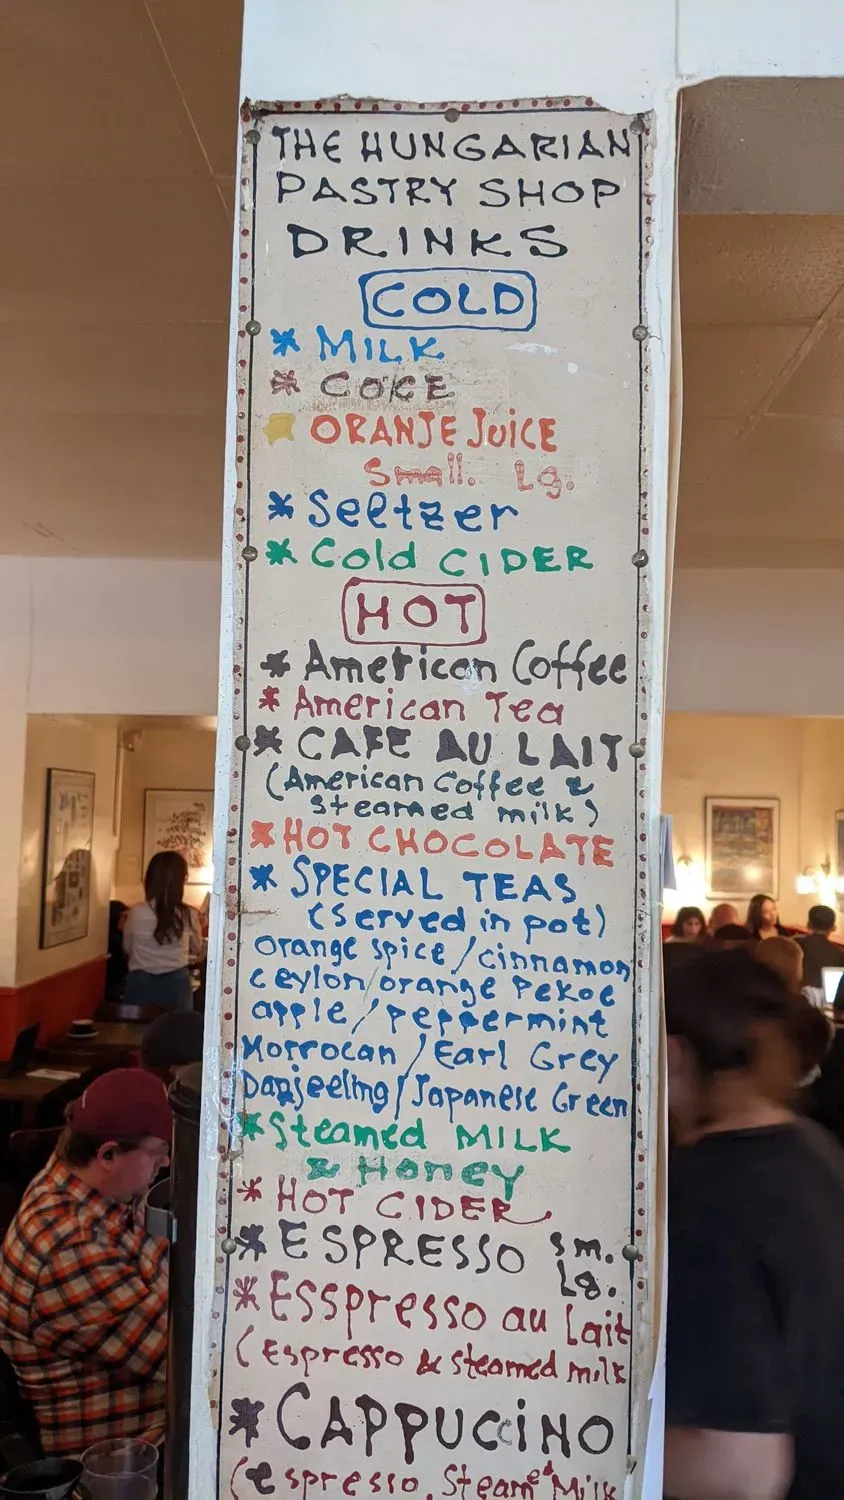 THE HUNGARIAN
PASTRY SHOP
DRINKS
COLD
* MILK
* COKE
ORANJE JUICE
Small. Lg.
* Seltzer
* Cold CIDER
HOT
* American Coffee
* American Tea
* CAFE AU LAIT
(American Coffee &
steamed milk)
* HOT CHOCOLATE
* SPECIAL TEAS
(served in pot)
orange spice/cinnamon
ceylon/orange Pekoe
apple/peppermint
Morrocan/Earl Grey
Darjeeling/Japanese Green
* Steamed MILK
& Honey
* HOT CIDER
* ESPRESSO sm.
Lg.
* Esspresso au Lait
(Espresso & steamed milk
* CAPPUCCINO
(espresso, Steamed Milk